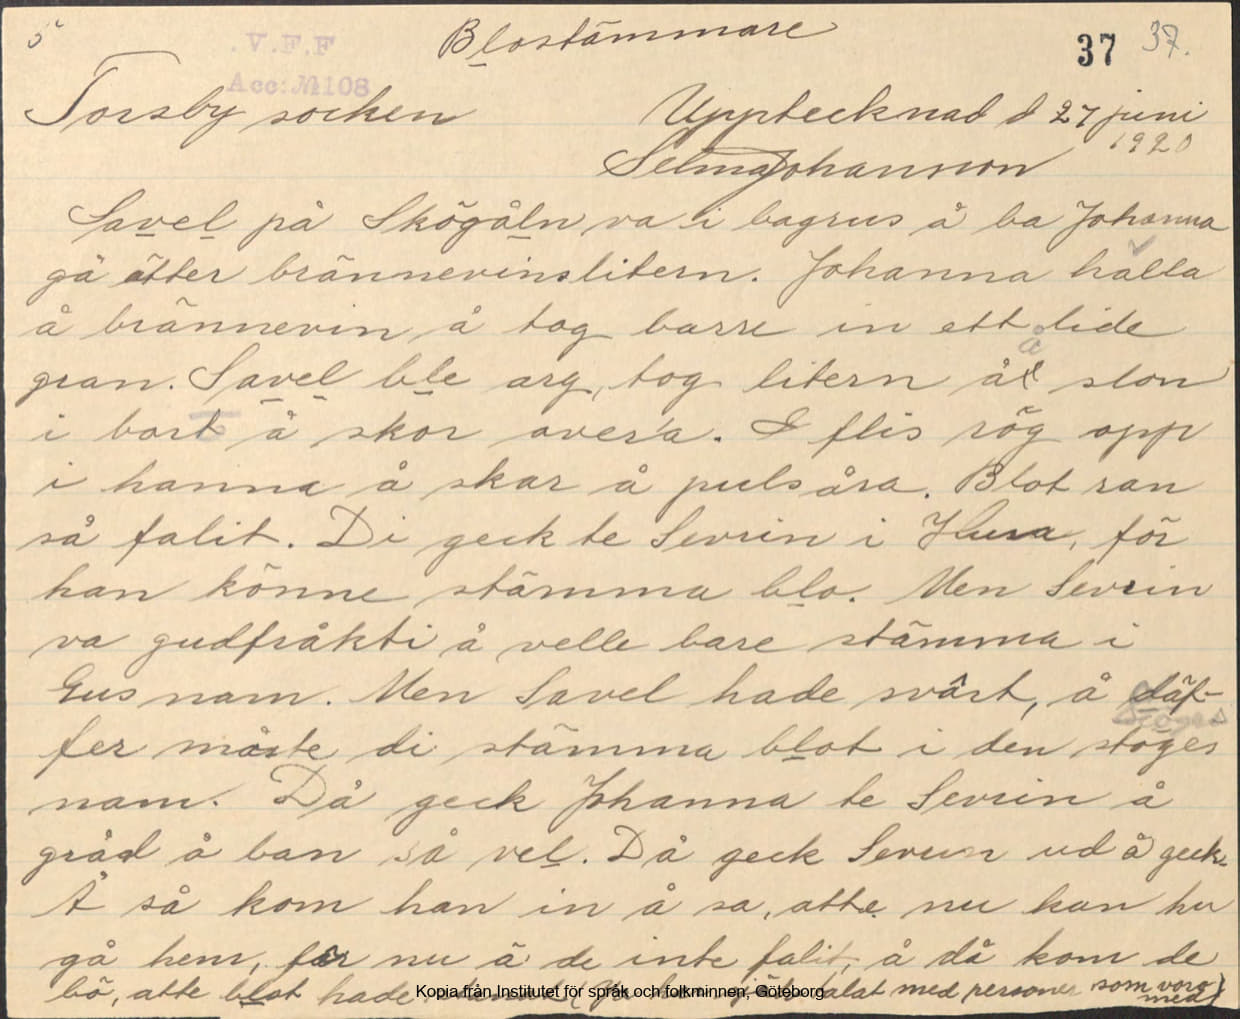 5
Blostämmare
37 37.
V.F.F
Acc: № 108
Torsby socken
Upptecknad d 27 juni
1920
Selma Johansson
Savel på Skögåln va i bagrus å ba Johanna
gå ätter brännevinslitern. Johanna hålla
å brännevin å tog barre in ett lide
gran. Savel ble arg, tog litern å slon
i bort å skor overa. I flis rög opp
i hanna å skar å pulsåra. Blot ran
så falit. Di geck te Sevrin i Hura, för
han könne stämma blo. Men Sevrin
va gudfråkti å velle bare stämma i
Gus nam. Men Savel hade svårt, å däf-
fer måste di stämma blot i den stöges
nam. Då geck Johanna te Sevrin å
gråd å ban så vel. Då geck Sevrin ud å geck.
Å så kom han in å sa, atte nu kan hu
gå hem, för nu ä de inte falit, å då kom de
bö, atte blot hade talat med personer som voro
med)
Kopia från Institutet för språk och folkminnen, Göteborg